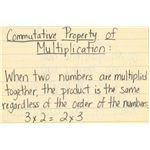 Commutative Property of
Multiplication:
When two numbers are multiplied
together, the product is the same
regardless of the order of the numbers.
3x2=2x3